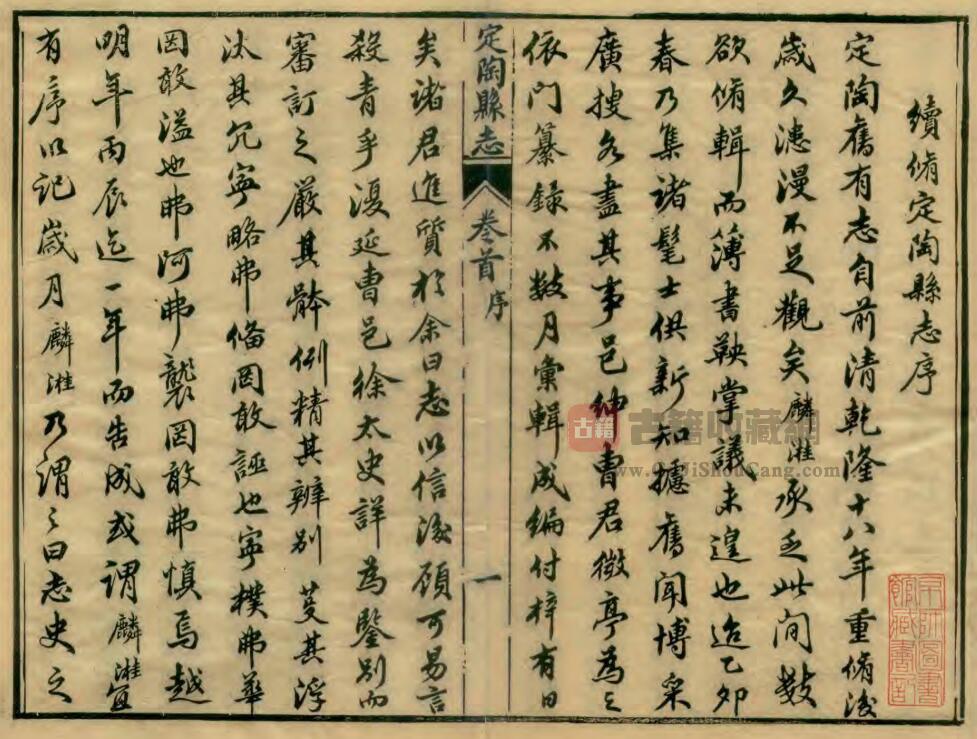 續脩定陶縣志序
定陶舊有志自前清乾隆十八年重脩後
歲久漶漫不足觀矣麟淮承乏此間數
欲脩輯而簿書鞅掌議未遑也迨乙卯
春乃集諸髦士供新知攄舊聞博采
廣搜各盡其事邑紳曹君微亭為之
依門纂錄不數月彙輯成編付梓有日
定陶縣志 卷首 序 一
矣諸君進質於余曰志以信後顧可易言
殺青乎復延曹邑徐太史詳為鑒別而
審訂之嚴其體例精其辨別芟其浮
汰其冗寧略弗偹罔敢誣也寧樸弗華
罔敢溢也弗阿弗襲罔敢弗慎焉越
明年丙辰迄一年而告成或謂麟淮宜
有序以記歲月麟淮乃謂之曰志史之
古籍收藏網
www.GuJiShouCang.com
古籍